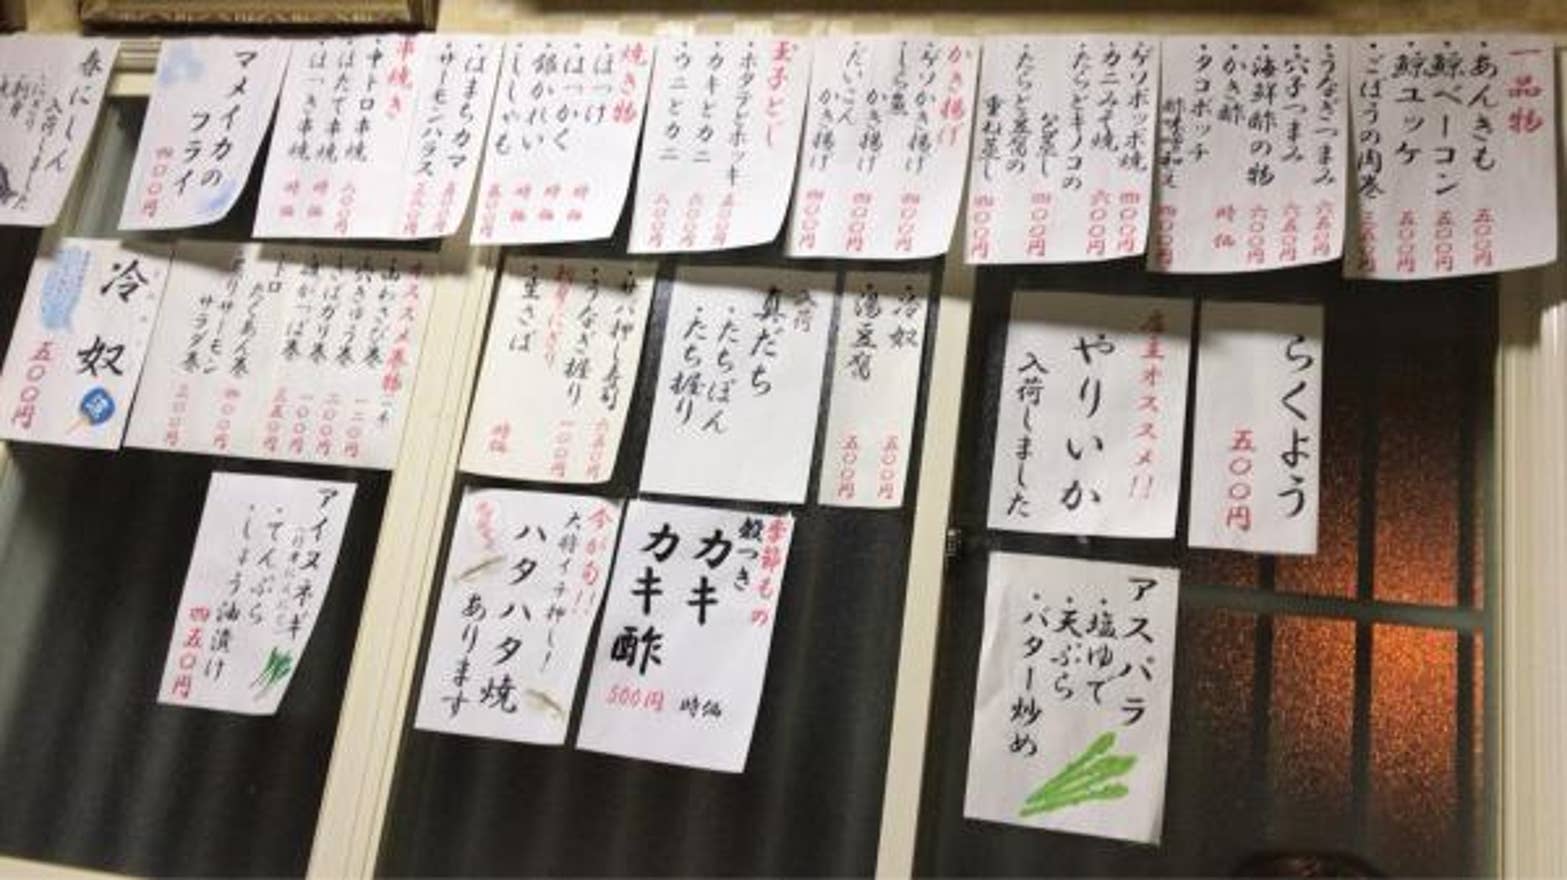 一品物
・あんきも 五〇〇円
・鯨ベーコン 五〇〇円
・鯨ユッケ 五〇〇円
・ごぼうの肉巻 三五〇円
・うなぎつまみ 六五〇円
・穴子つまみ 六五〇円
・海鮮酢の物 六〇〇円
・かき酢 時価
・タコポッチ
酢味噌和え 四〇〇円
・ゲソポッポ焼 四〇〇円
・カニみそ焼 六〇〇円
・たらとキノコの
なべ蒸し 四〇〇円
・たらと豆腐の
重ね蒸し 四〇〇円
かき揚げ
・ゲソかき揚げ 四〇〇円
かき揚げ 四〇〇円
・だいこん
かき揚げ 四〇〇円
玉子とじ
・ホタテとホッキ 五〇〇円
・カキとカニ 六〇〇円
・ウニとカニ 八〇〇円
焼き物
・ほっけ 時価
・はっかく 時価
・銀かれい 時価
・ししゃも 五〇〇円
・はまちカマ 五五〇円
・サーモンハラス 三五〇円
串焼き
・中トロ串焼 六〇〇円
・ほたて串焼 時価
・ほっき串焼 時価
マメイカの
フライ
四〇〇円
春にしん
入荷しました
・にぎり
・刺身
らくよう
五〇〇円
店主オススメ!!
やりいか
入荷しました
・冷奴 五〇〇円
・湯豆腐 五〇〇円
入荷
真だち
・たちぽん
・たち握り
・サバ押し寿司 六五〇円
・うなぎ握り 一〇〇円
・生さば 時価
オススメ巻物
・山わさび巻 一二〇円
・きゅう巻 二〇〇円
・さばガリ巻 一〇〇円
たくあん巻 四〇〇円
サーモン
サラダ巻 三〇〇円
冷奴
五〇〇円
アスパラ
・塩ゆで
・天ぷら
・バター炒め
季節もの
殻つき
カキ 時価
カキ酢 500円
今が旬!!
大将イチ押し!
ハタハタ焼
あります
アイヌネギ
・てんぷら
・しょう油漬け
四五〇円